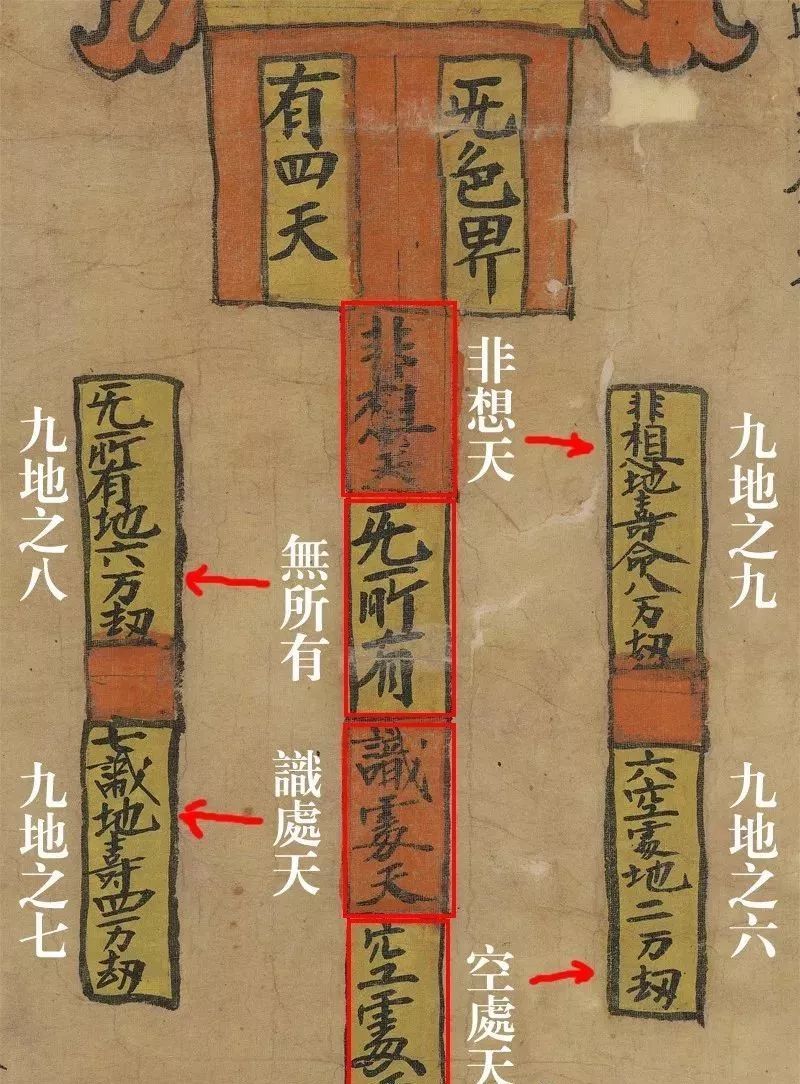 无色界
有四天
非想天
无所有
識處天
空處天
非想地壽命八万劫
六空處地二万劫
无所有地六万劫
七識地壽四万劫
非想天
無所有
識處天
空處天
九地之九
九地之六
九地之八
九地之七